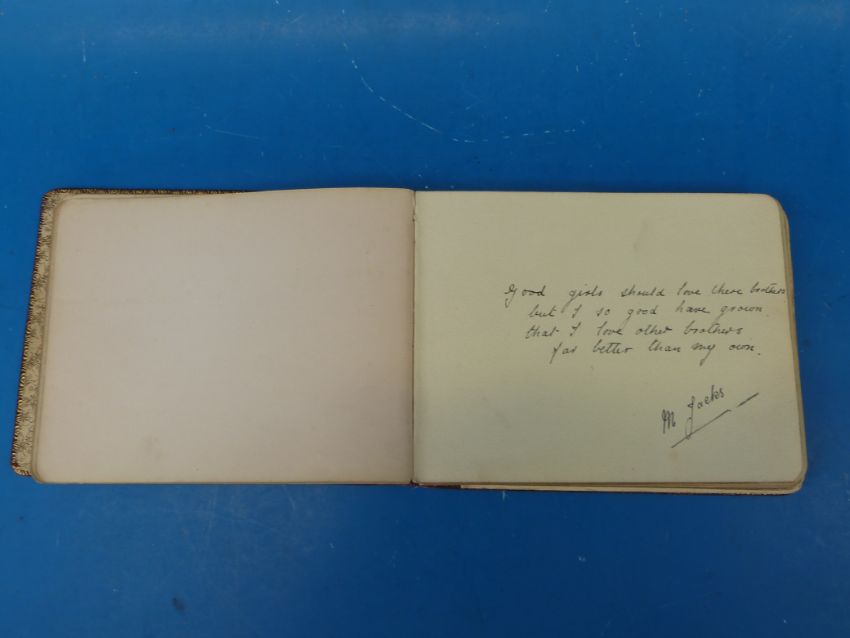 Good girls should love there brothers
but I so good have grown
that I love other brothers
far better than my own.
M Jacks